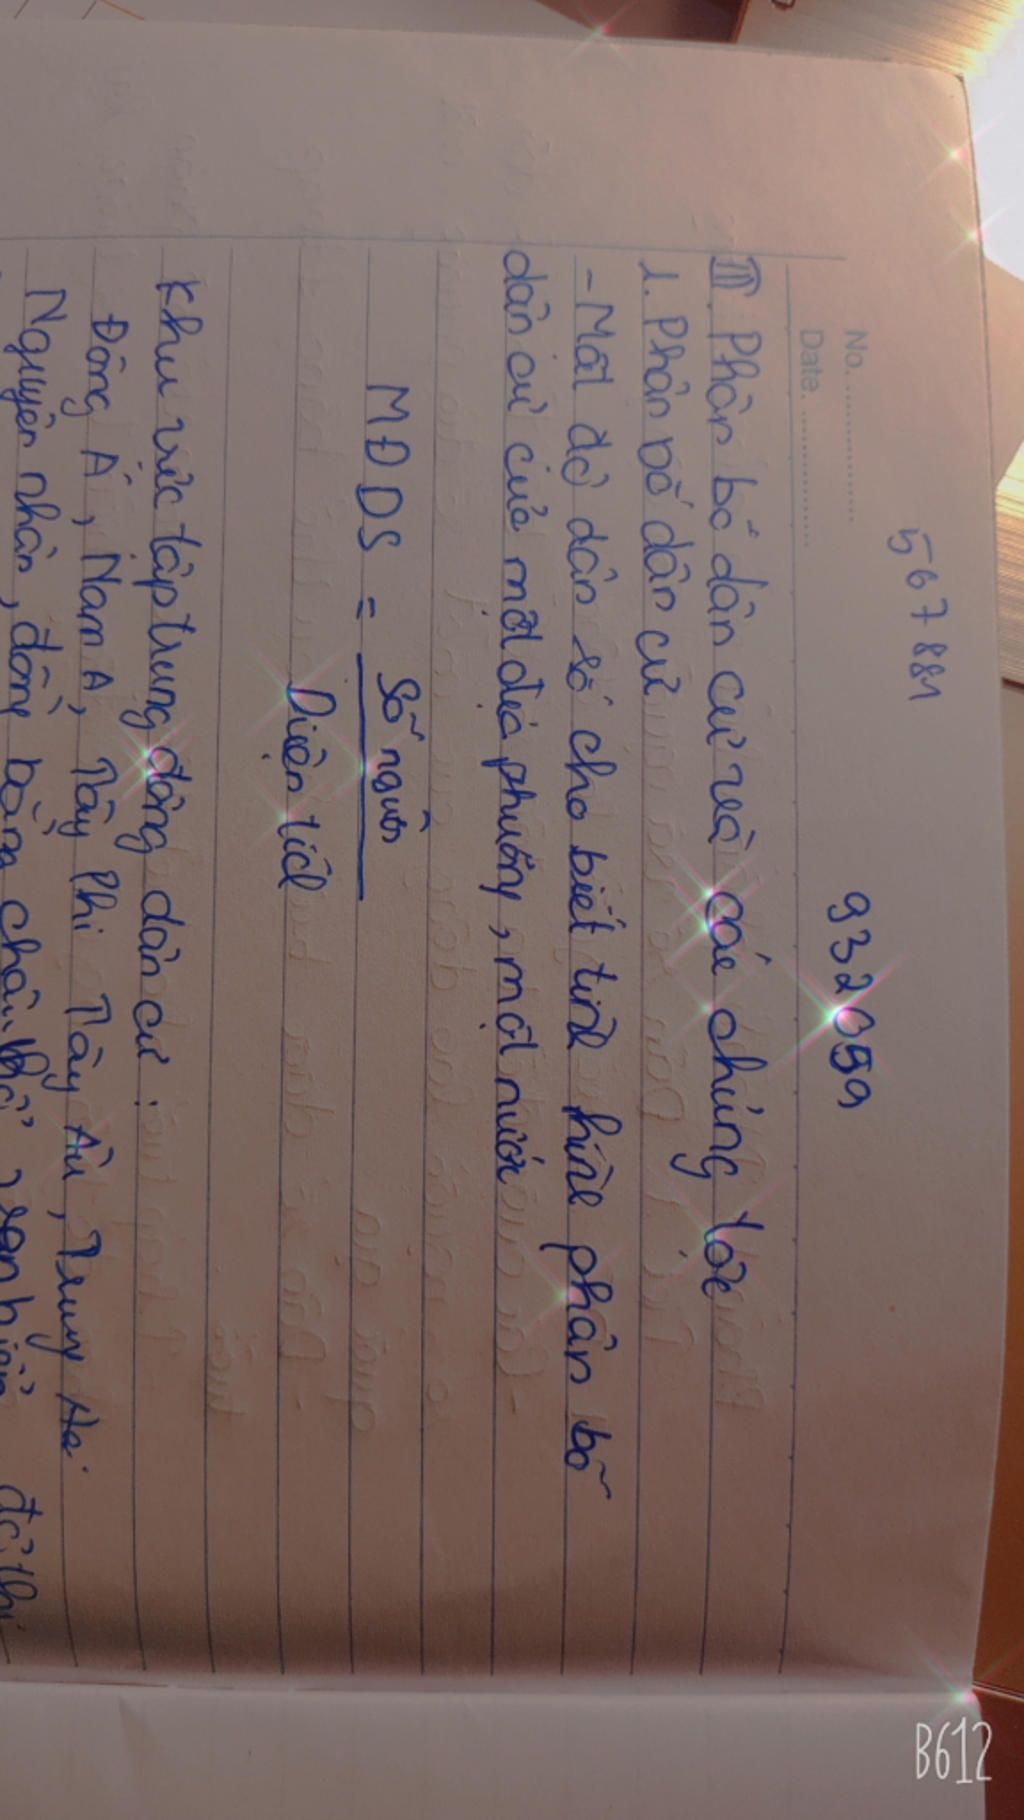 567881
932059
No. ...............
Date. ...............
III. Phân bố dân cư và các chủng tộc
1. Phân bố dân cư
- Mật độ dân số cho biết tình hình phân bố
dân cư của một địa phương, một nước
MĐDS = Số người
Diện tích
Khu vực tập trung đông dân cư:
Đông Á, Nam Á, Tây Phi Tây Âu, Trung
Nguyên nhân, đồng bằng châu thổ, ven biển đô thị
B612